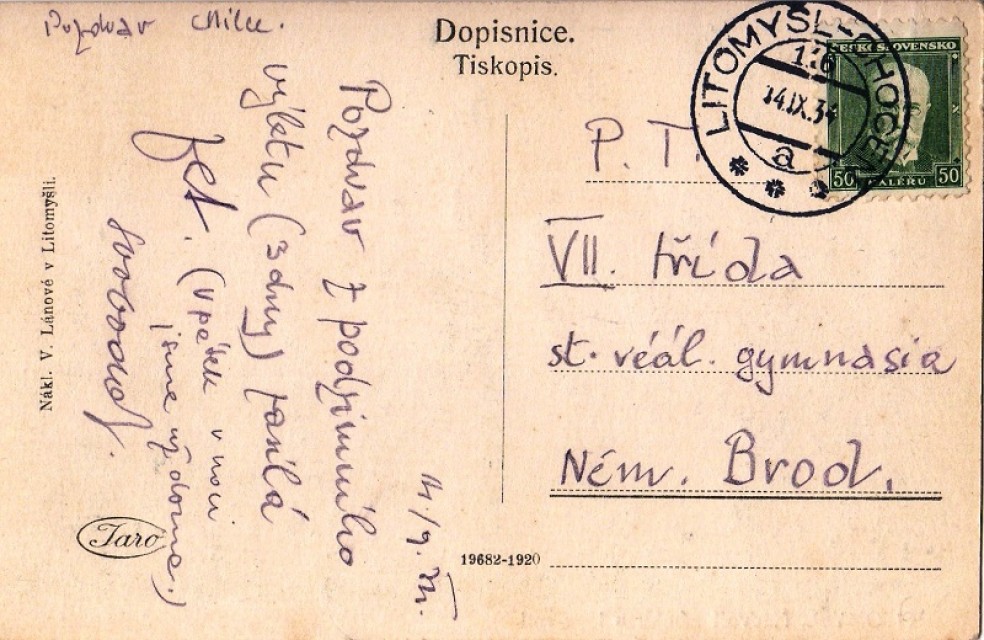 Dopisnice.
Tiskopis.
LITOMYŠL-CHOCEŇ
14.IX.34
a
ČESKOSLOVENSKO
50 HALÉŘŮ 50
P. T.
VII. třída
st. reál. gymnasia
Něm. Brod.
19682-1920
14./9. 
Pozdrav z podzimního
výletu (3 dny) zasílá
(V pátek v noci
jsme už doma.)
Svoboda
Pozdrav
Nákl. V. Lánové v Litomyšli.
Taro